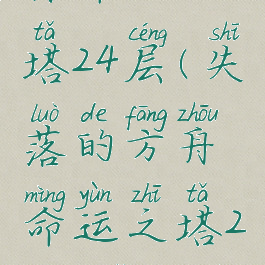 tǎ céng shī
塔24层(失
luò de fāng zhōu
落的方舟
mìng yùn zhī tǎ
命运之塔2